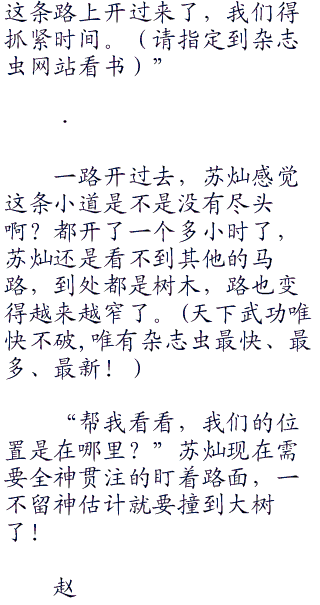 这条路上开过来了，我们得
抓紧时间。（请指定到杂志
虫网站看书）”
.
一路开过去，苏灿感觉
这条小道是不是没有尽头
啊？都开了一个多小时了，
苏灿还是看不到其他的马
路，到处都是树木，路也变
得越来越窄了。(天下武功唯
快不破,唯有杂志虫最快、最
多、最新！)
“帮我看看，我们的位
置是在哪里？”苏灿现在需
要全神贯注的盯着路面，一
不留神估计就要撞到大树
了！
赵